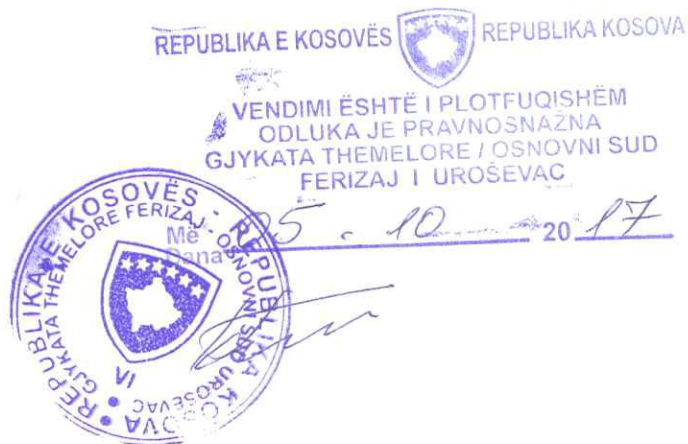 REPUBLIKA E KOSOVËS REPUBLIKA KOSOVA
VENDIMI ËSHTË I PLOTFUQISHËM
ODLUKA JE PRAVNOSNAŽNA
GJYKATA THEMELORE / OSNOVNI SUD
FERIZAJ I UROŠEVAC
Më 05 . 10 2017
Dana
REPUBLIKA E KOSOVËS - REPUBLIKA KOSOVA
GJYKATA THEMELORE FERIZAJ - OSNOVNI SUD UROŠEVAC
VI